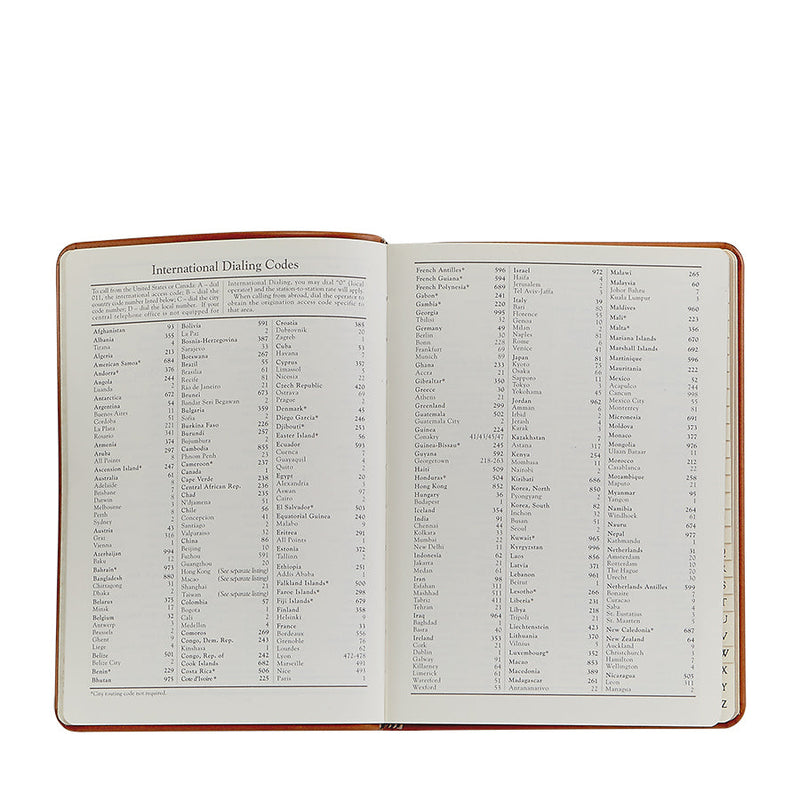 International Dialing Codes
To call from the United States or Canada: A – dial
011, the international access code; B – dial the
country code number listed below; C – dial the city
code number; D – dial the local number. If your
central telephone office is not equipped for
International Dialing, you may dial "0" (local
operator) and the station-to-station rate will apply.
When calling from abroad, dial the operator to
obtain the origination access code specific to
that area.
Afghanistan 93
Albania 355
Tirana
Algeria 213
American Samoa* 684
Andorra* 376
Angola 244
Luanda 2
Antarctica 672
Argentina 54
Buenos Aires 11
Cordoba 51
La Plata 221
Rosario 341
Armenia 374
Aruba 297
All Points 8
Ascension Island* 247
Australia 61
Adelaide 8
Brisbane 7
Darwin 8
Melbourne 3
Perth
Sydney 2
Austria 43
Graz 316
Vienna 1
Azerbaijan 994
Baku 12
Bahrain* 973
Bangladesh 880
Chittagong 31
Dhaka 2
Belarus 375
Minsk 17
Belgium 32
Antwerp 3
Brussels 2
Ghent 9
Liege 4
Belize 501
Belize City 2
Benin* 229
Bhutan 975
Bolivia 591
La Paz 2
Bosnia-Herzegovina 387
Sarajevo 33
Botswana 267
Brazil 55
Brasilia 61
Recife
Rio de Janeiro 21
Brunei 673
Bandar Seri Begawan 2
Bulgaria 359
Sofia 2
Burkina Faso 226
Burundi 257
Bujumbura
Cambodia 855
Phnom Penh 23
Cameroon* 237
Canada 1
Cape Verde 238
Central African Rep. 236
Chad 235
N'Djamena 51
Chile 56
Concepcion 41
Santiago 2
Valparaiso 32
China 86
Beijing 10
Fuzhou 591
Guangzhou 20
Hong Kong (See separate listing)
Macao (See separate listing)
Shanghai 21
Taiwan (See separate listing)
Colombia 57
Bogota 1
Cali 2
Medellin 4
Comoros 269
Congo, Dem. Rep. 243
Kinshasa
Congo, Rep. of 242
Cook Islands 682
Costa Rica* 506
Cote d'Ivoire* 225
Croatia 385
Dubrovnik 20
Zagreb 1
Cuba 53
Havana 7
Cyprus 357
Limassol
Nicosia 22
Czech Republic 420
Ostrava 69
Prague 2
Denmark* 45
Diego Garcia* 246
Djibouti* 253
Easter Island* 56
Ecuador 593
Cuenca
Guayaquil 4
Quito
Egypt 20
Alexandria 3
Aswan 97
Cairo 2
El Salvador* 503
Equatorial Guinea 240
Malabo 9
Eritrea 291
All Points
Estonia 372
Tallinn 2
Ethiopia 251
Addis Ababa 1
Falkland Islands* 500
Faroe Islands* 298
Fiji Islands* 679
Finland 358
Helsinki 9
France 33
Bordeaux 556
Grenoble 76
Lourdes 62
Lyon 472-478
Marseille 491
Nice 493
Paris 1
*City routing code not required.
French Antilles* 596
French Guiana* 594
French Polynesia* 689
Gabon* 241
Gambia* 220
Georgia 995
Tbilisi 32
Germany 49
Berlin 30
Bonn 228
Frankfurt 69
Munich 89
Ghana 233
Accra 21
Gibraltar* 350
Greece 30
Athens 21
Greenland 299
Guatemala 502
Guatemala City 2
Guinea 224
Conakry 41/43/45/47
Guinea-Bissau* 245
Guyana 592
Georgetown 218-263
Haiti 509
Honduras* 504
Hong Kong 852
Hungary 36
Budapest 1
Iceland 354
India 91
Chennai 44
Kolkata 33
Mumbai 22
New Delhi 11
Indonesia 62
Jakarta 21
Medan 61
Iran 98
Esfahan 311
Mashhad 511
Tabriz 411
Tehran 21
Iraq 964
Baghdad 1
Basra 40
Ireland 353
Cork 21
Dublin 1
Galway 91
Killarney 64
Limerick 61
Waterford 51
Wexford 53
Israel 972
Haifa 4
Jerusalem 2
Tel Aviv-Jaffa 3
Italy 39
Bari 80
Florence 55
Genoa 10
Milan 2
Naples 81
Rome 6
Venice 41
Japan 81
Kyoto 75
Osaka 66
Sapporo 11
Tokyo 3
Yokohama 45
Jordan 962
Amman 6
Irbid 2
Jerash 4
Karak 3
Kazakhstan 7
Almaty
Kenya 254
Mombasa 11
Nairobi 2
Kiribati 686
Korea, North 850
Pyongyang 2
Korea, South 82
Inchon 32
Busan 51
Seoul 2
Kuwait* 965
Kyrgyzstan 996
Laos 856
Latvia 371
Lebanon 961
Beirut 1
Lesotho* 266
Liberia* 231
Libya 218
Tripoli 21
Liechtenstein 423
Lithuania 370
Vilnius 5
Luxembourg* 352
Macao 853
Macedonia 389
Madagascar 261
Antananarivo 22
Malawi 265
Malaysia 60
Johor Bahru 7
Kuala Lumpur 3
Maldives 960
Mali* 223
Malta* 356
Mariana Islands 670
Marshall Islands 692
Martinique 596
Mauritania 222
Mexico 52
Acapulco 744
Cancun 998
Mexico City 55
Monterrey 81
Micronesia 691
Moldova 373
Monaco 377
Mongolia 976
Ulaan Bataar 11
Morocco 212
Casablanca 22
Mozambique 258
Maputo 21
Myanmar 95
Yangon 1
Namibia 264
Windhoek 61
Nauru 674
Nepal 977
Kathmandu 1
Netherlands 31
Amsterdam 20
Rotterdam 10
The Hague 70
Utrecht 30
Netherlands Antilles 599
Bonaire 7
Curacao 9
Saba 4
St. Eustatius 3
St. Maarten 5
New Caledonia* 687
New Zealand 64
Auckland 9
Christchurch 3
Hamilton 7
Wellington 4
Nicaragua 505
Leon 311
Managua 2
S
T
U
V
W
X
Y
Z